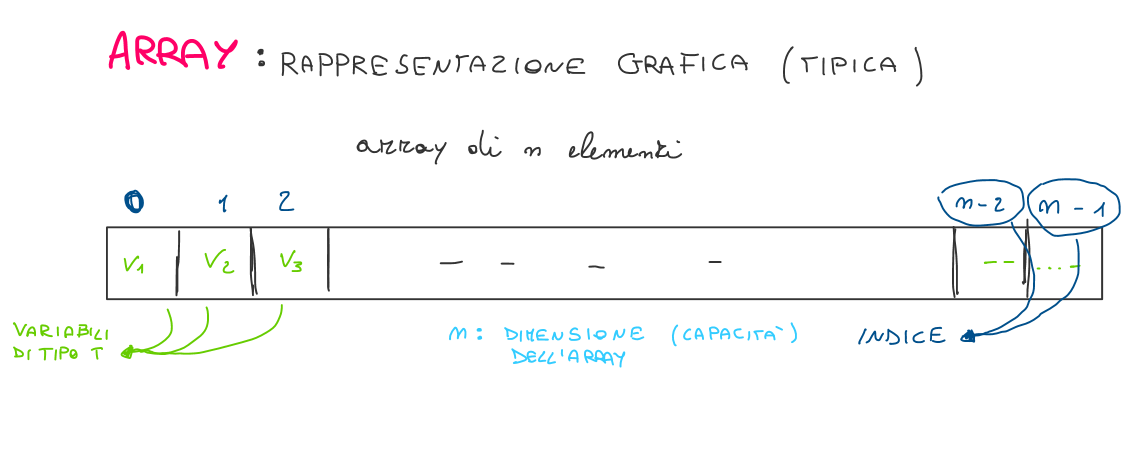 ARRAY : RAPPRESENTAZIONE GRAFICA (TIPICA)
array di n elementi
0 1 2 n-2 n-1
V1 V2 V3 — - - - -- ...-
VARIABILI
DI TIPO T
n: DIMENSIONE (CAPACITÀ)
DELL'ARRAY
INDICE